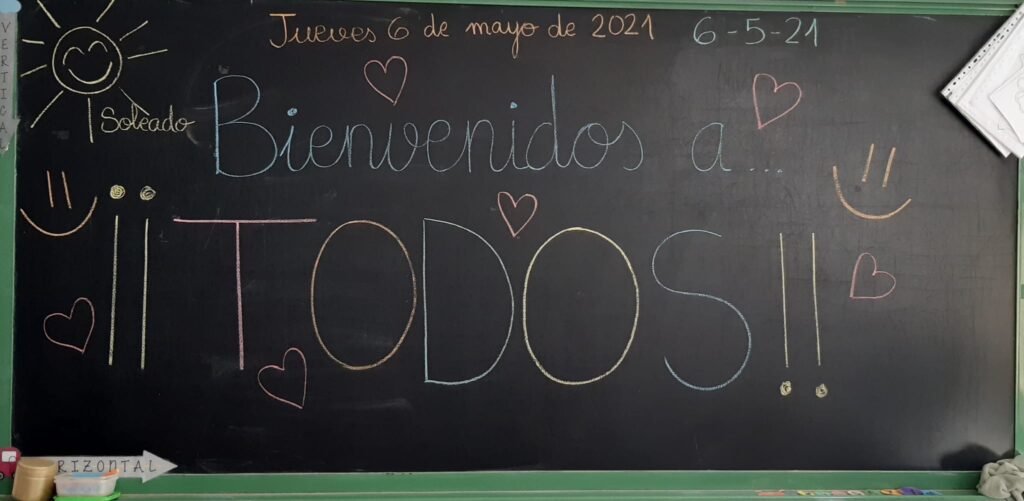 Jueves 6 de mayo de 2021 6-5-21
Soleado
Bienvenidos a...
¡¡TODOS!!
VERTICA
RIZONTAL